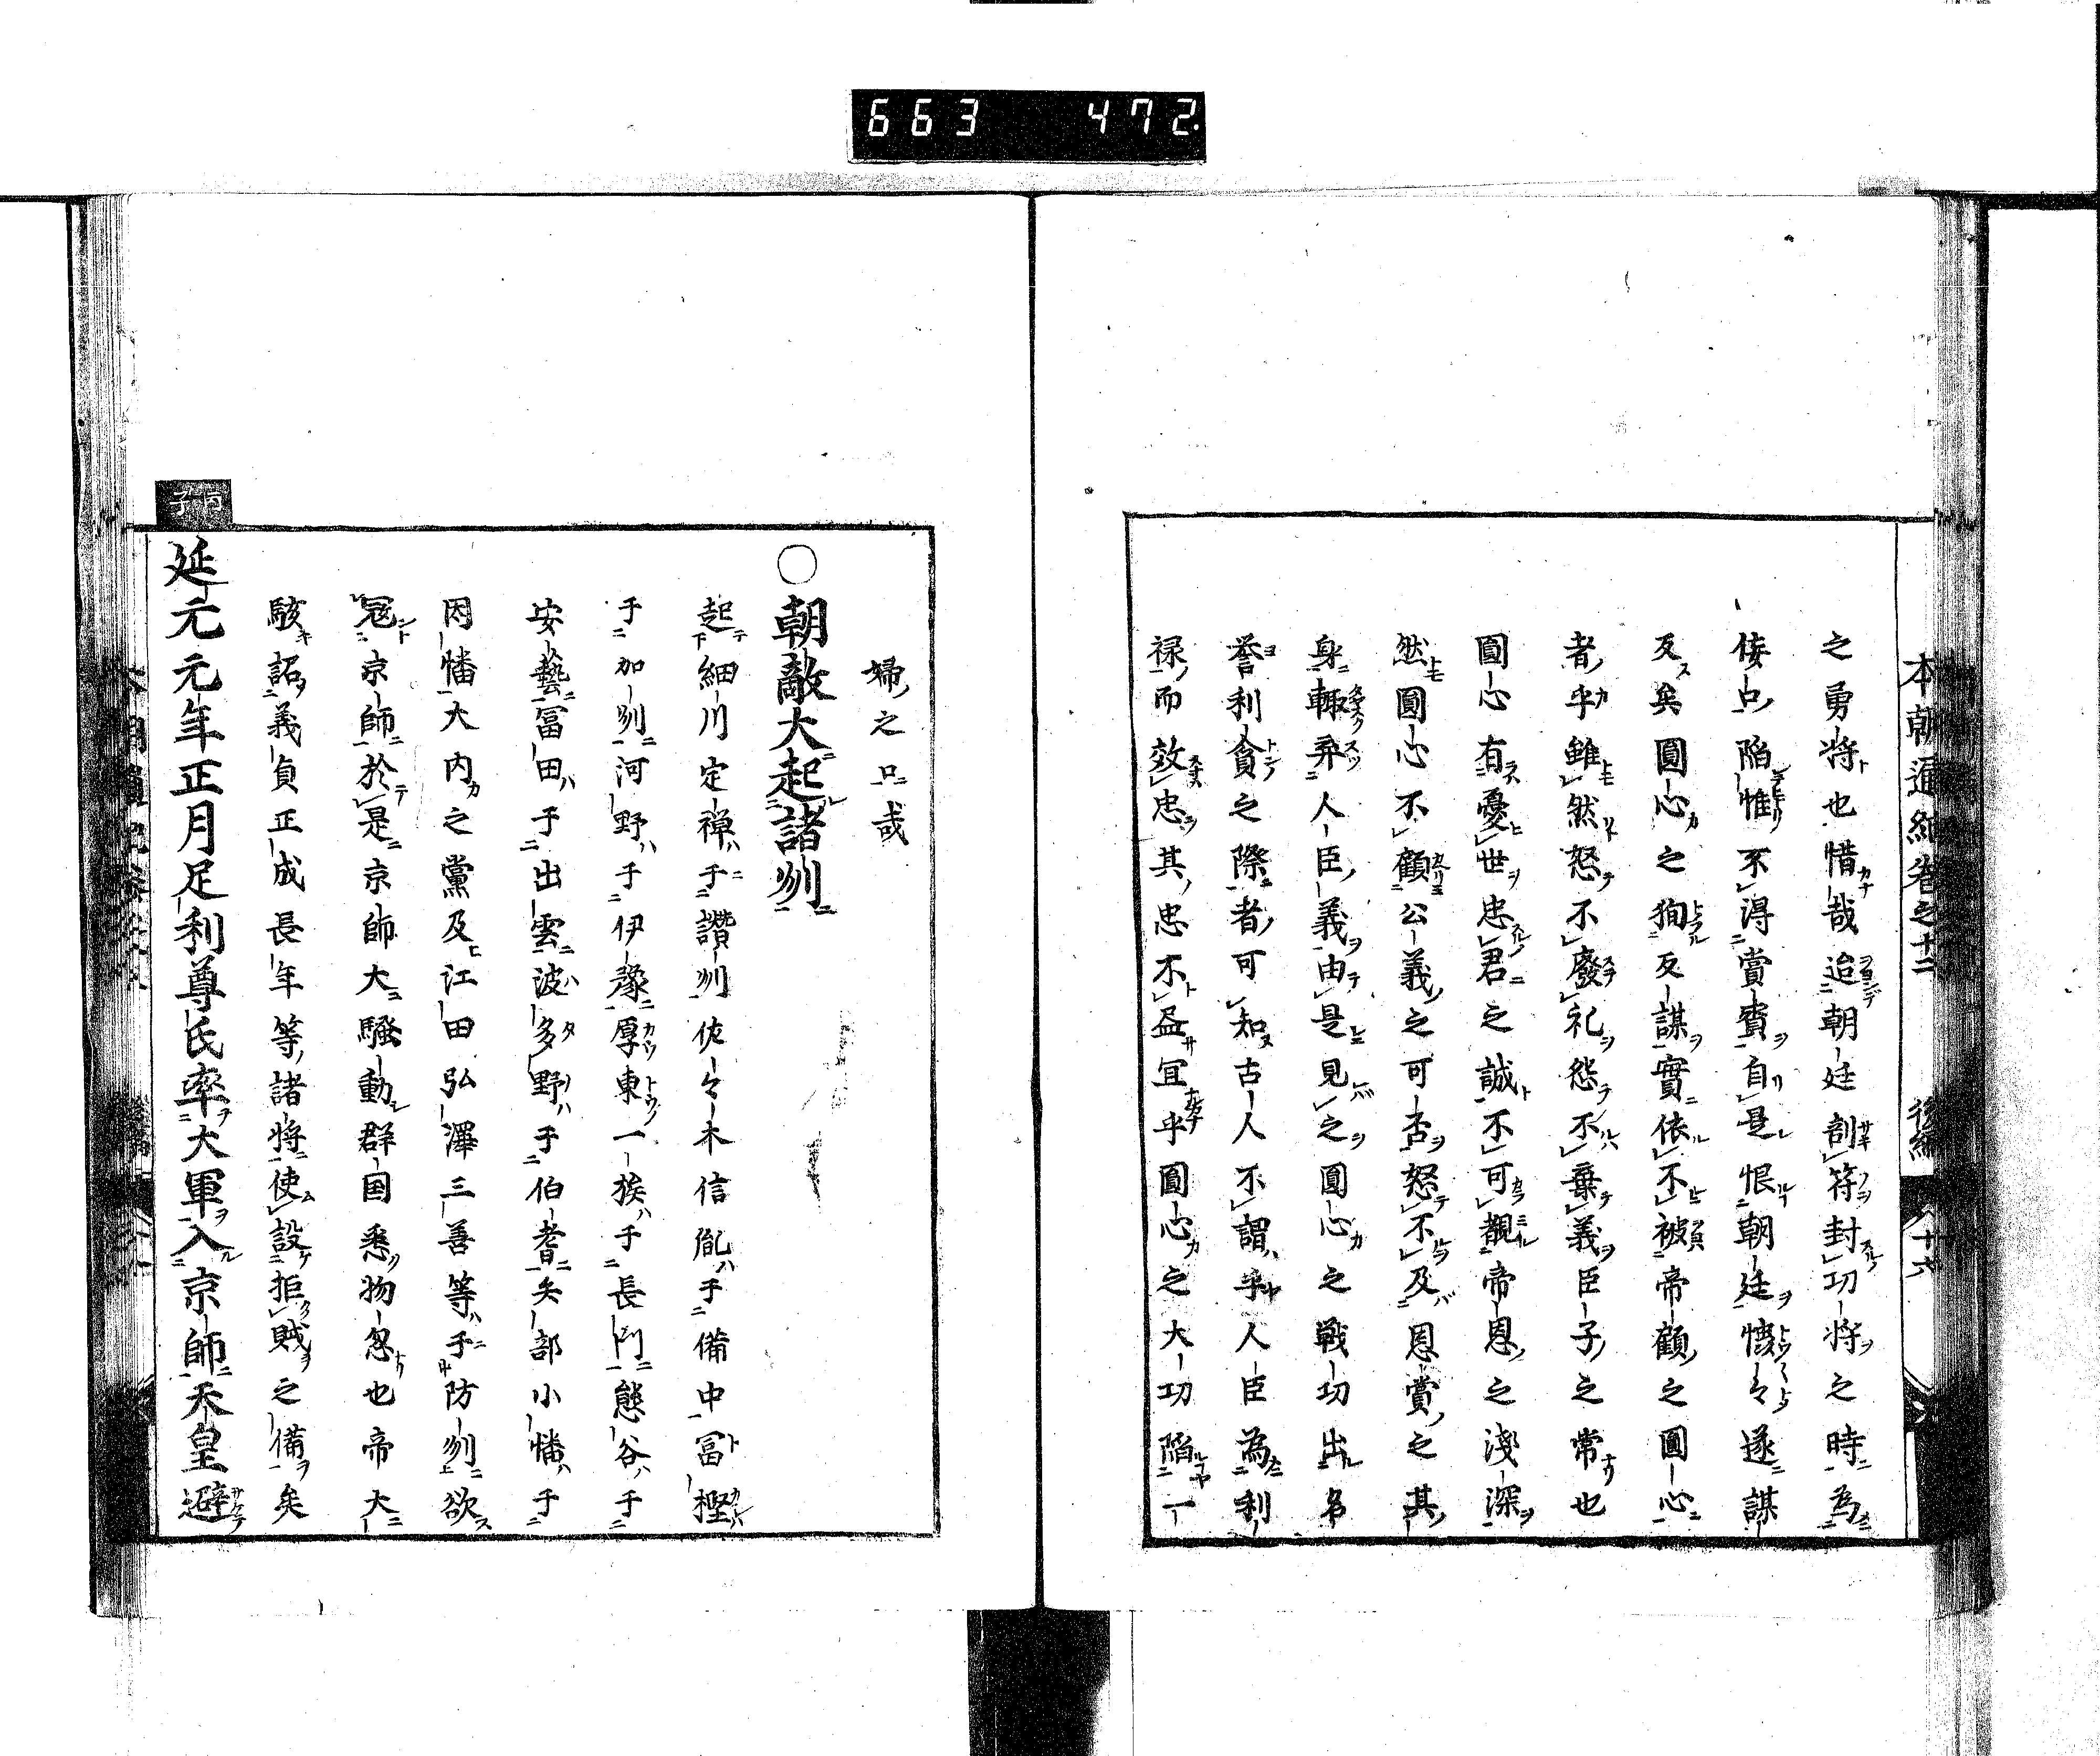 663 472
本朝通紀卷之十二 後編 十六
之勇将也惜哉迨朝廷剖符封功将之時為
佞口陥惟不得賞賚自是恨朝廷懐々遂謀
反矣圓心之狥反謀實依不被帝顧之圓心
者乎雖然怒不廢礼怨不棄義臣子之常也
圓心有憂世忠君之誠不可覩帝恩之淺深
然圓心不顧公義之可否怒不及恩賞之其
身輙弃人臣義由是見之圓心之戦功出名
誉利貪之際者可知古人不謂乎人臣為利
禄而效忠其忠不盈宜乎圓心之大功陥一
婦之口或
○朝敵大起諸州
起細川定禅于讃州佐々木信胤于備中冨樫
于加州河野于伊豫厚東一族于長門熊谷于
安藝冨田于出雲波多野于伯耆矢部小幡于
因幡大内之黨及江田弘澤三善等于防州欲
冦京師於是京師大騒動群国悉物忩也帝大
駭詔義貞正成長年等諸将使設拒賊之備矣
丙子
延元元年正月足利尊氏率大軍入京師天皇避